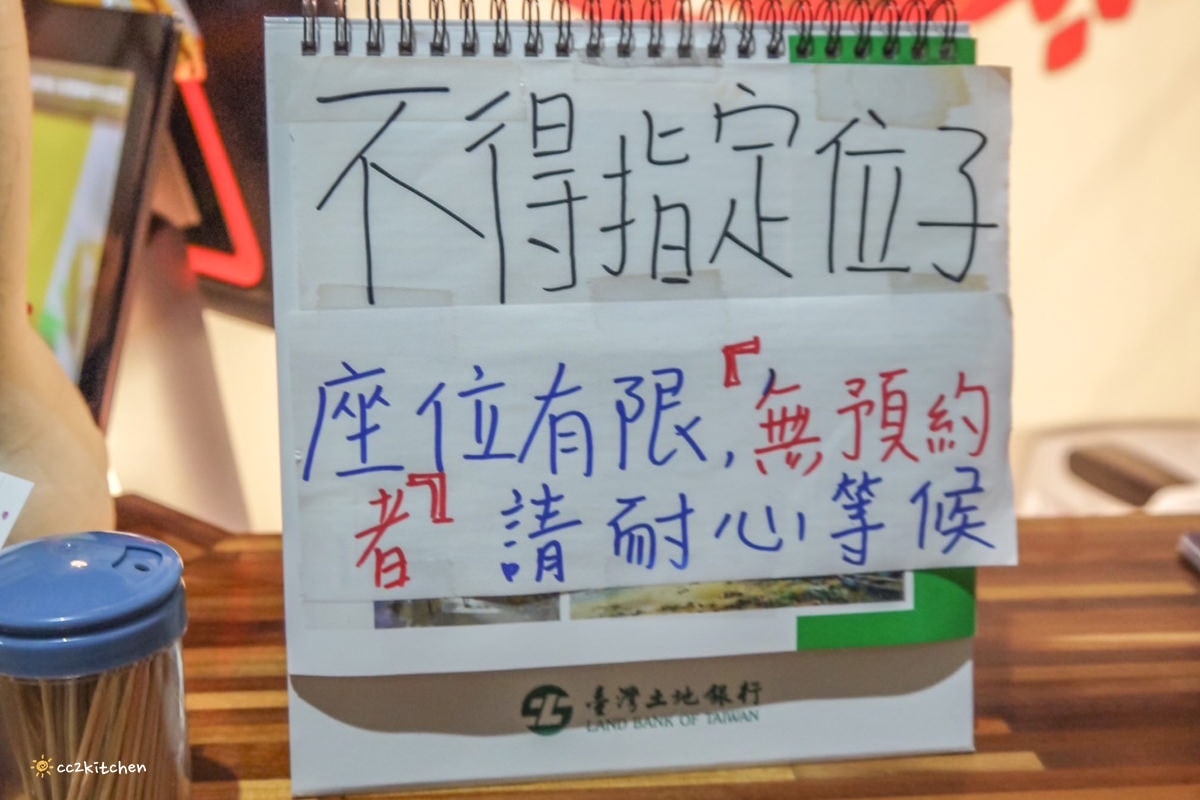 不得指定位子
座位有限,『無預約
者』請耐心等候
臺灣土地銀行
LAND BANK OF TAIWAN
cc2kitchen